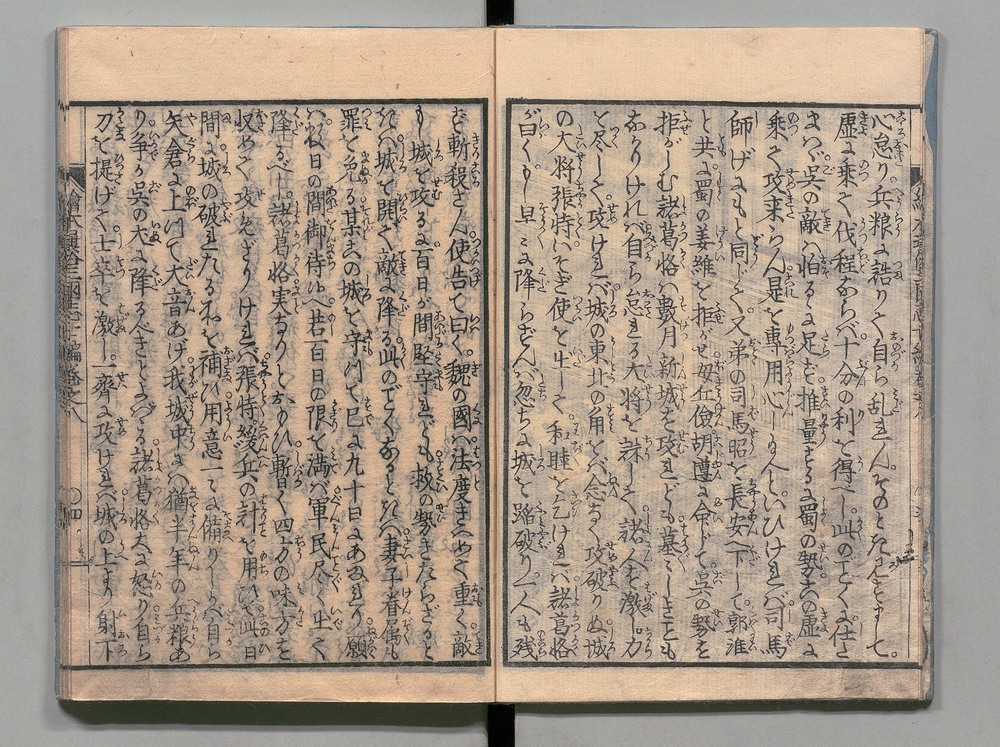 心怠り兵粮に誥りて自ら乱れん。そのときに至りまして。
虚に乗て伐程ならバ十分の利を得べし此のごとく仕さ
まハバ呉の敵ハ怕るゝに足ず推量するに蜀の勢其の虚に
乗じて攻来らん是を専用心し給へといひけれバ司馬
師げにもと同じく又弟の司馬昭を長安へ下して郭淮
と共に蜀の姜維を拒がせ毋丘儉胡遵に命じて呉の勢を
拒がしむ諸葛恪ハ數月新城を攻れども墓〻しきとも
なかりけれバ自ら怠る大将を誅して諸人を激し力
を尽して攻けれバ城の東北の角すべ念なく攻破りぬ城
の大将張特いそぎ使を出して和睦を乞けれバ諸葛恪
が曰くもし早に降らずんバ忽ちに城を踏破り一人も残
ず斬殺さん使告て曰く魏の國ハ法度きハめて重く敵
もし城を攻るに百日が間堅守れども救の勢きたらざると
きハ城を開て敵に降る此のごとくなるときハ妻子眷属も
罪を免る某其の城を守つて已に九十日にあまれり願
ハくハ日の間御待ゆへ若百日の限を満バ軍民尽く出て
降るべし諸葛恪実なりとおもひ暫く四方の味方を
収めて攻ざりけれバ張特緩兵の計を用ひて此日
間に城の破れたる処を補ひ用意一〻に備りしかバ自ら
矢倉に上つて大音あげ我城中にハ猶半年の兵粮あ
り争か呉の犬に降るべきとよバゝる諸葛恪大に怒り自ら
刀を提げて士卒を激し一齊に攻けれバ城の上より射下
繪本通俗三國志十編巻之八